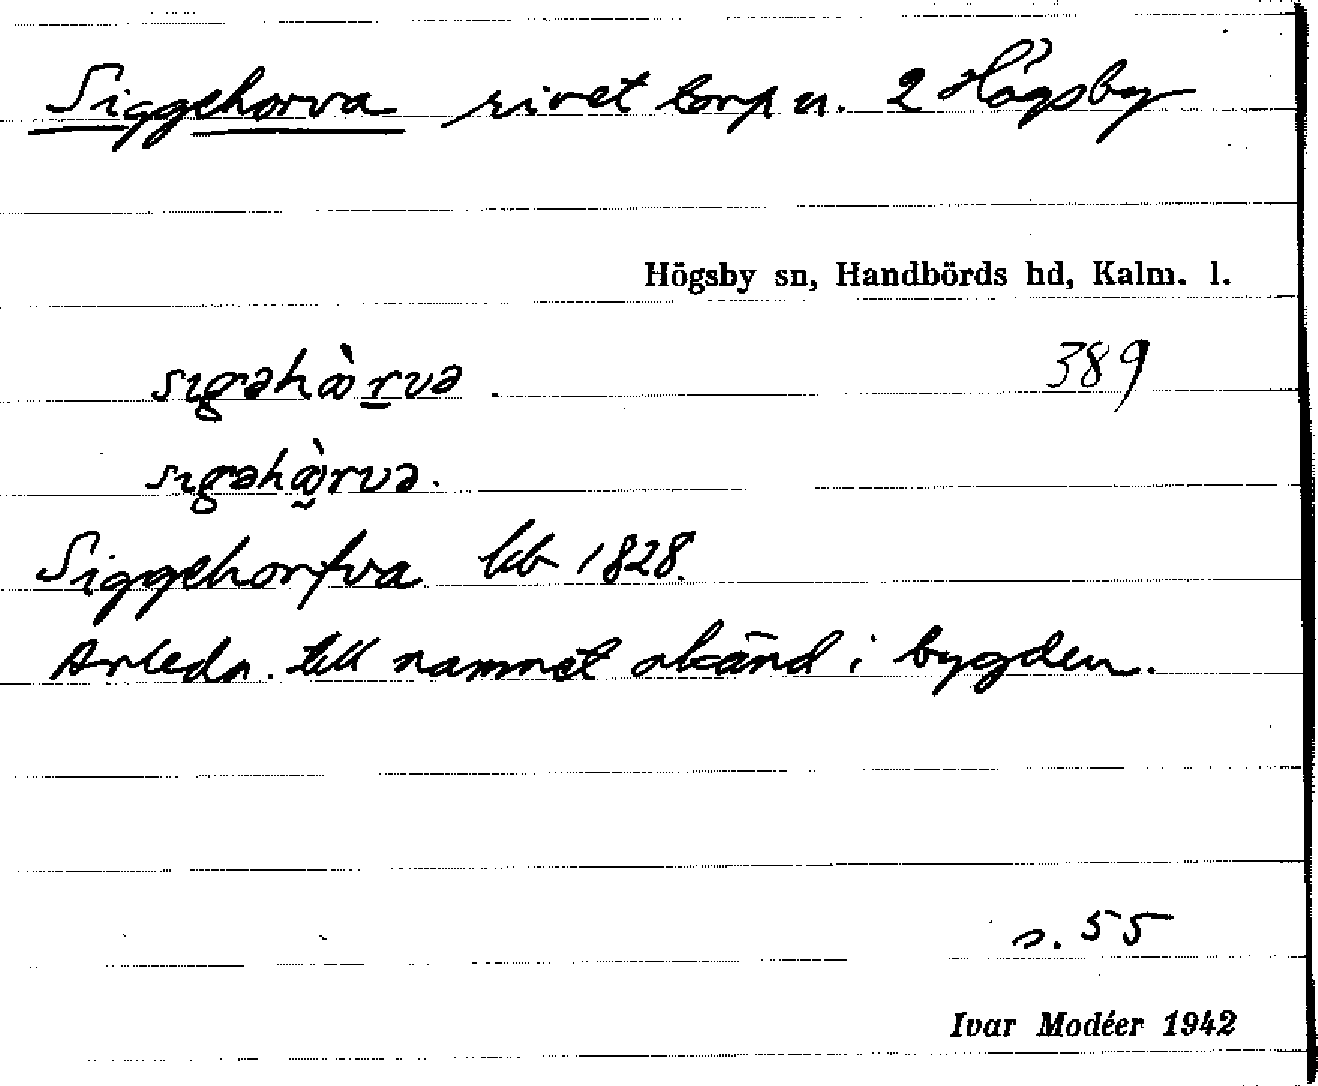 Siggehorva rivet torp u. 2 Högsby
Högsby sn, Handbörds hd, Kalm. l.
389
Siggehorfva kb 1828.
Anledn. till namnet okänd i bygden.
s. 55
Ivar Modéer 1942